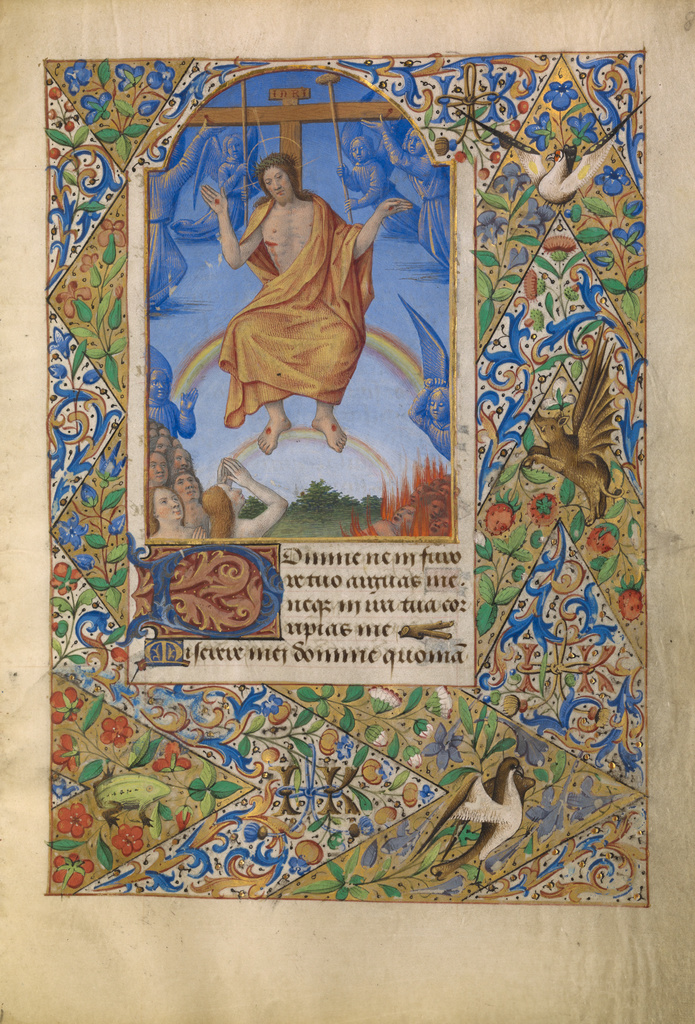 INRI
Domine ne in furo
re tuo arguas me.
neqz in ira tua cor
ripias me
Miserere mei domine quoniā